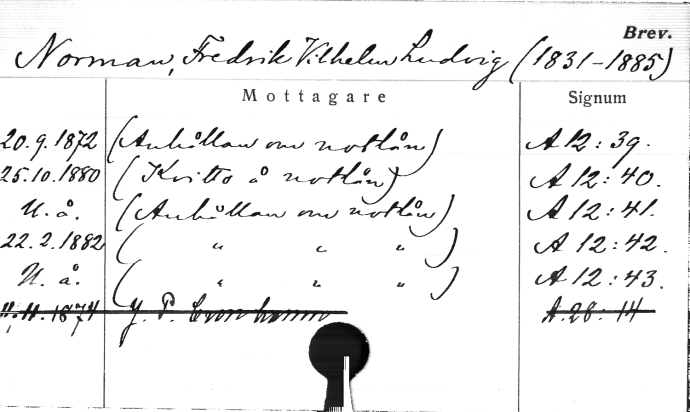 Brev.
Norman, Fredrik Vilhelm Ludvig (1831-1885)
Mottagare Signum
20.9.1872 (Anhållan om notlån) A 12:39.
25.10.1880 (Kvitto å notlån) A 12:40.
U.å. (Anhållan om notlån) A 12:41.
22.2.1882 ( " " " ) A 12:42.
U.å. ( " " " ) A 12:43.
11.1874 J. P. Cronhamn A.28:14